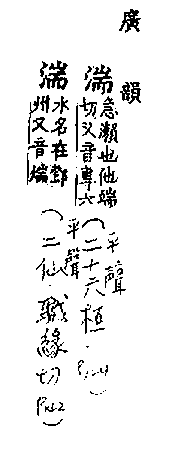 廣韻
湍
急瀨也他端
切又音專六
平聲
(二十六桓.
湍
水名在鄧
州又音煓
平聲
(二仙.職緣切